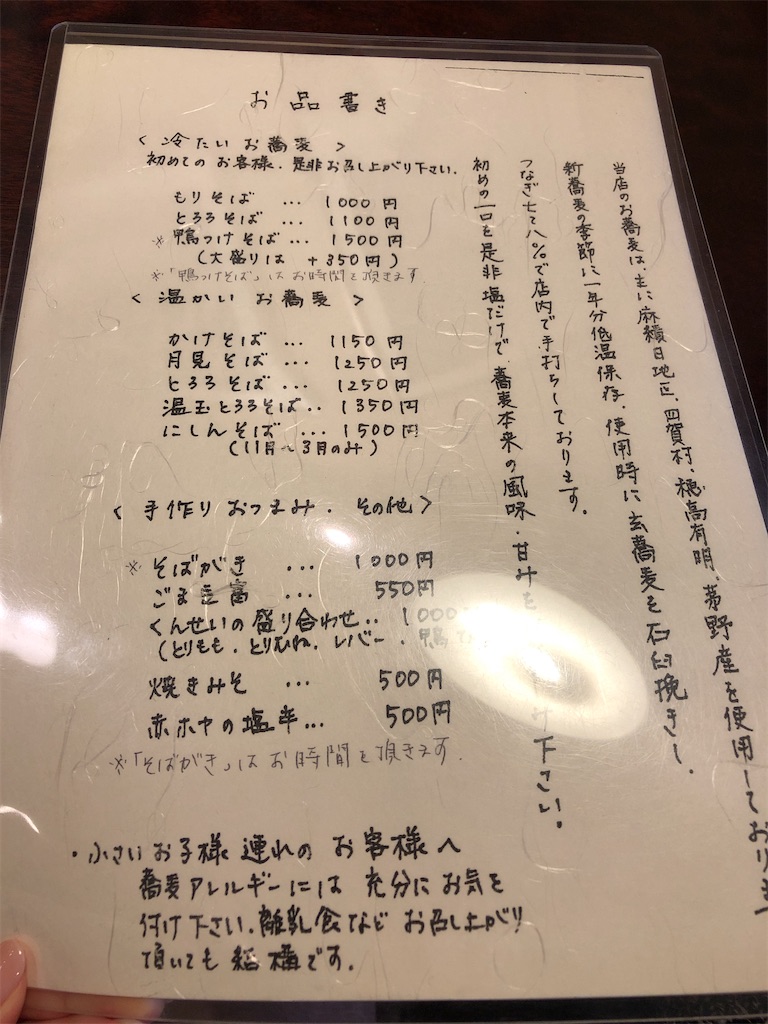 お品書き
〈冷たいお蕎麦〉
初めてのお客様、是非お召し上がり下さい。
もりそば … 1000円
とろろそば … 1100円
※鴨つけそば … 1500円
(大盛りは +350円)
※「鴨つけそば」はお時間を頂きます
〈温かいお蕎麦〉
かけそば … 1150円
月見そば … 1250円
とろろそば … 1250円
温玉とろろそば‥ 1350円
にしんそば … 1500円
(11月〜3月のみ)
〈手作りおつまみ・その他〉
※そばがき … 1000円
ごま豆富 … 550円
くんせいの盛り合わせ‥ 1000
(とりもも、とりむね、レバー、鴨
焼きみそ … 500円
赤ホヤの塩辛… 500円
※「そばがき」はお時間を頂きます.
・小さいお子様連れのお客様へ
蕎麦アレルギーには充分にお気を
付け下さい。離乳食などお召し上がり
頂いても結構です。
当店のお蕎麦は、主に麻績日地区、四賀村、穂高有明、茅野産を使用しております
新蕎麦の季節に一年分低温保存、使用時に玄蕎麦を石臼挽きし、
つなぎ七〜八%で店内で手打ちしております。
初めの一口を是非塩だけで、蕎麦本来の風味・甘みを み下さい。